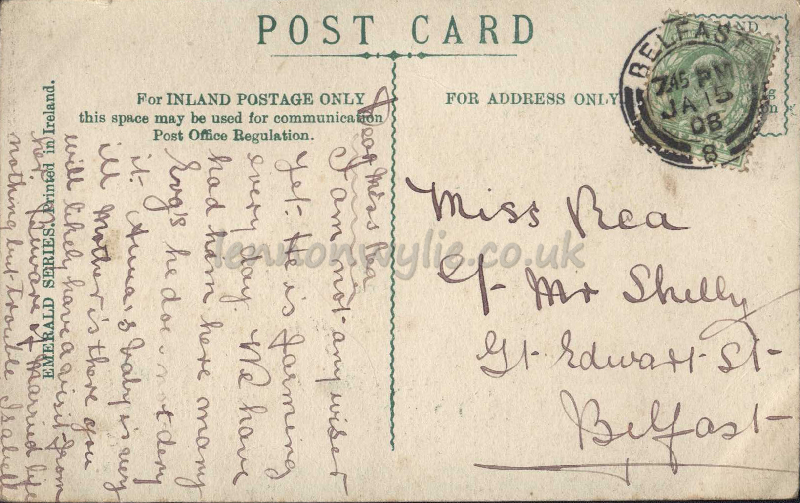 POST CARD
For INLAND POSTAGE ONLY
this space may be used for communication
Post Office Regulation.
FOR ADDRESS ONLY
BELFAST
7.45 PM
JA 15
08
8
EMERALD SERIES. Printed in Ireland.
Miss Rea
C/- Mr Shelly
Gt- Edward St-
Belfast
Dear Miss Rea
I am not any wiser
yet. He is farming
every day. We have
had him here many
Evgs he does not deny
it. Anna,s baby is very
ill Mother is there you
will likely have a visit from
her. Beware of Married life
nothing but trouble Isabell
lennonwylie.co.uk